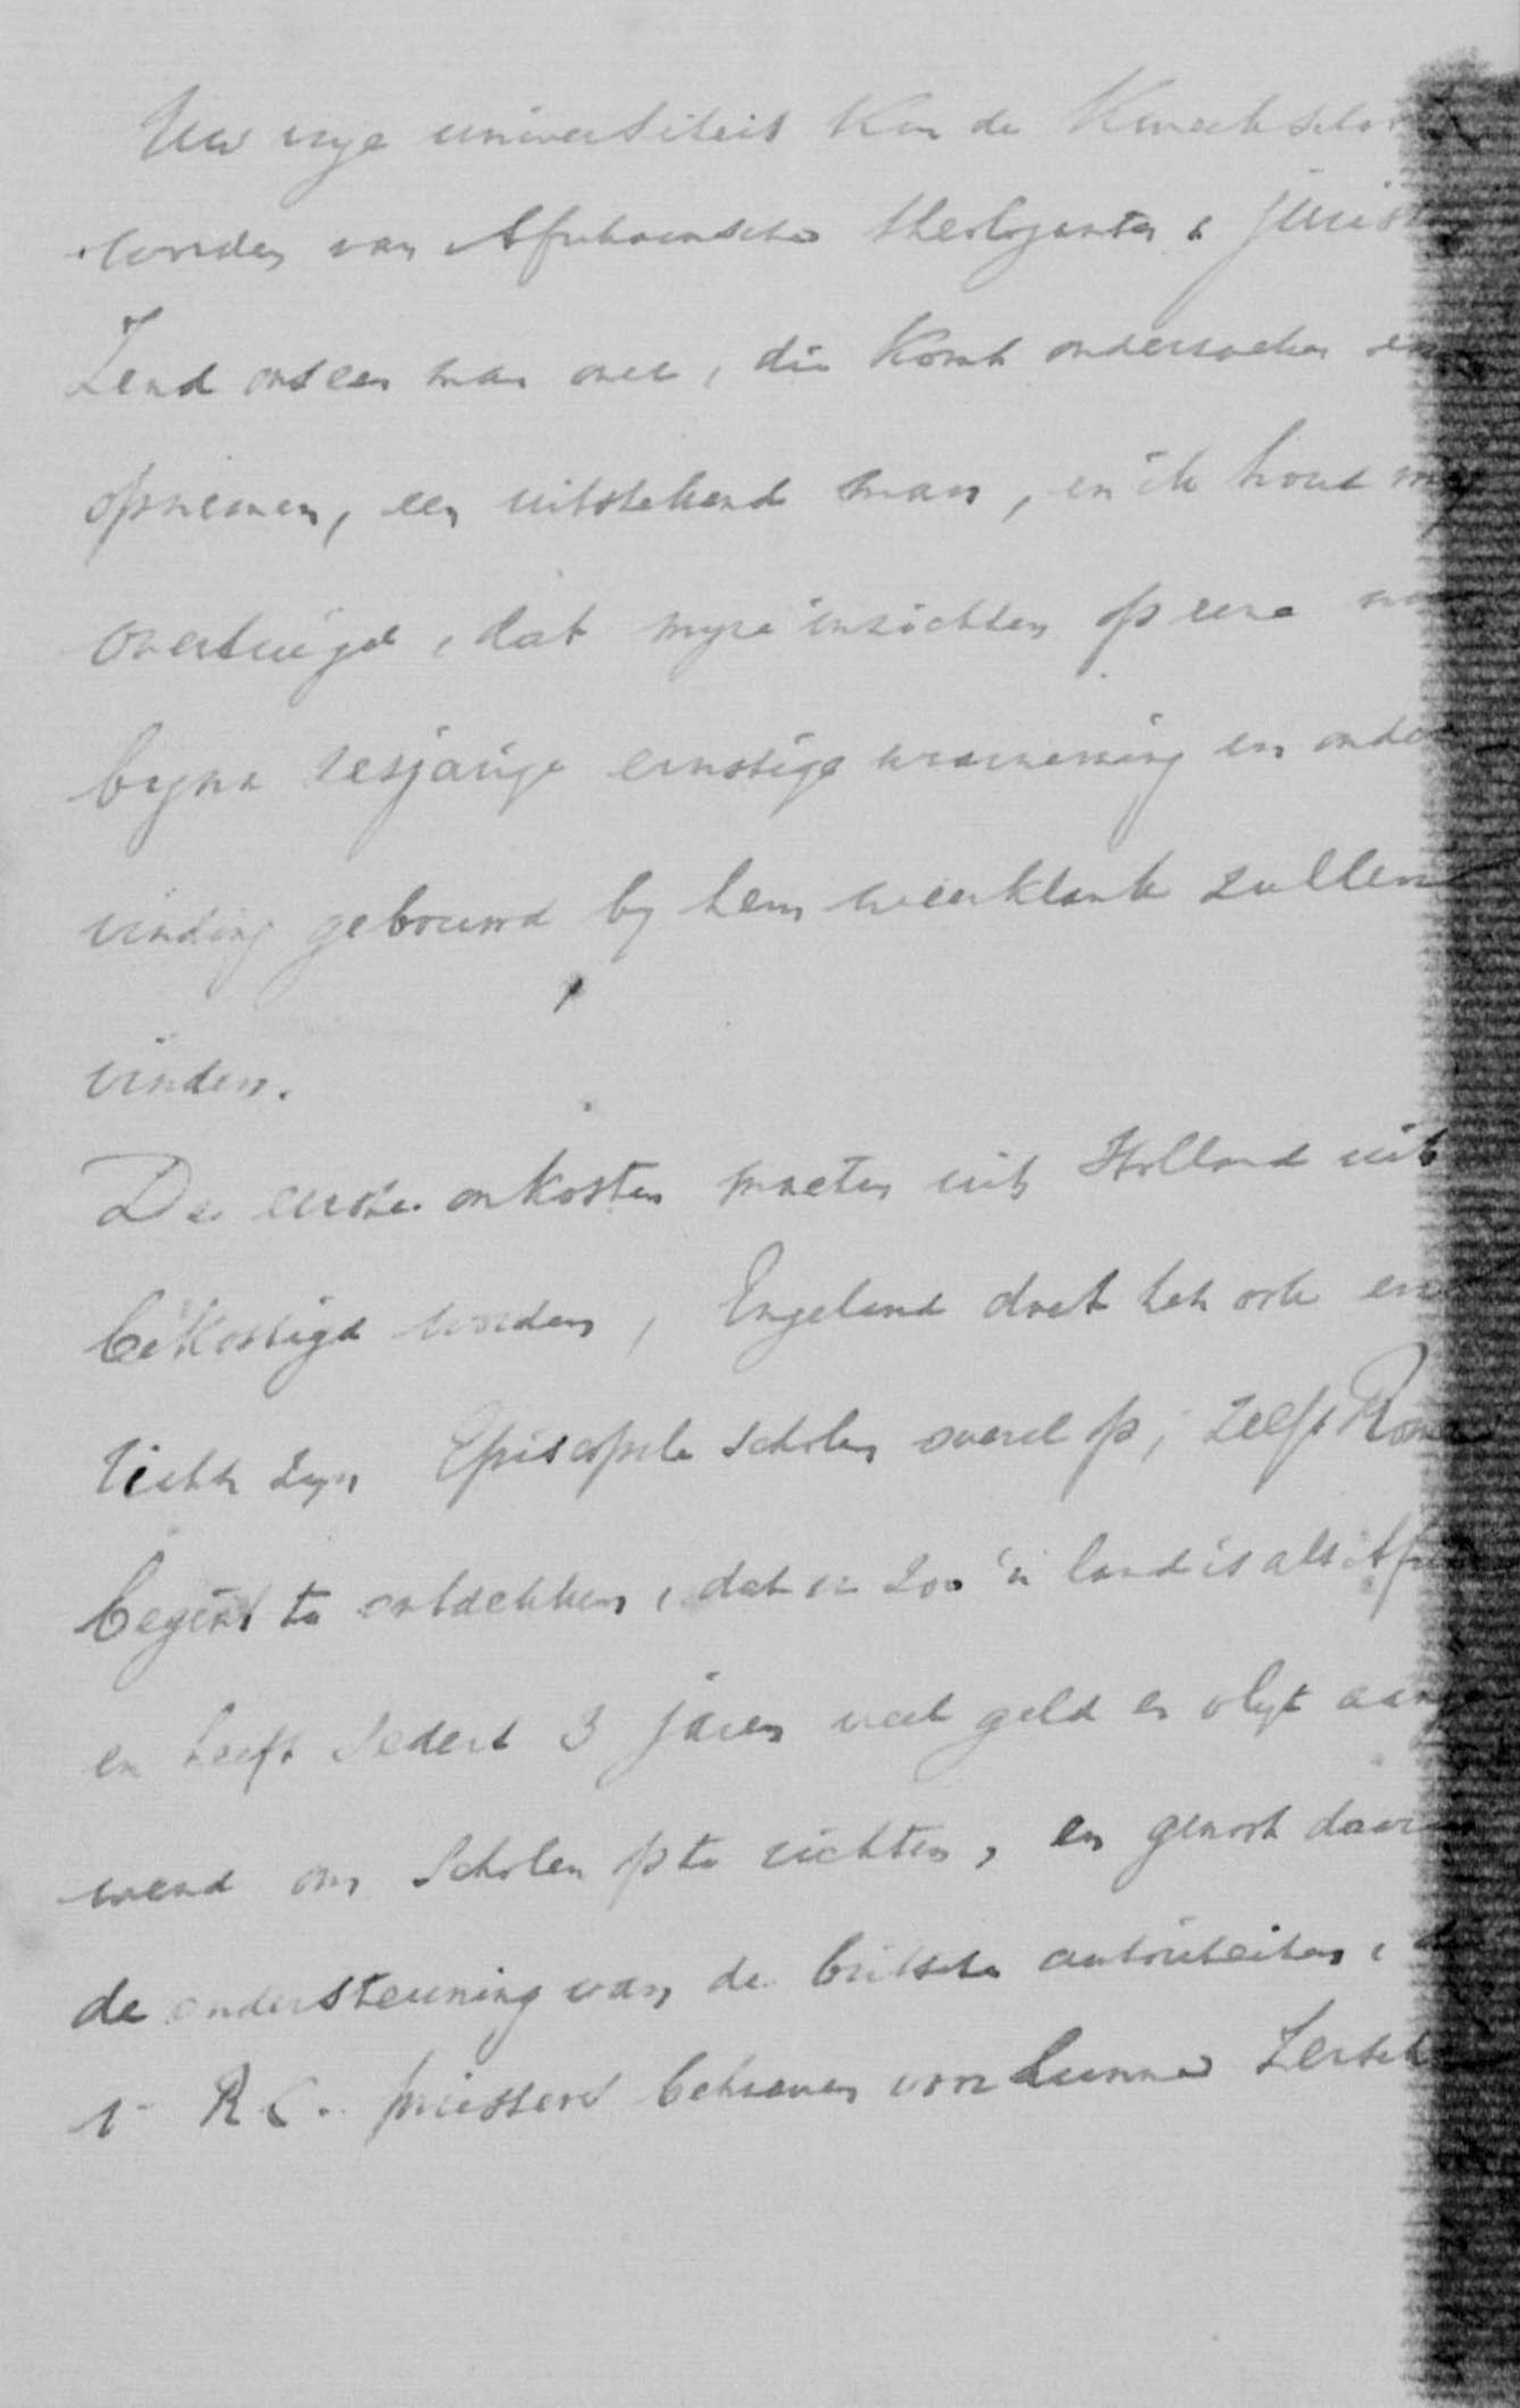 Uw vrye universiteit kan de Kweekschool
worden van Afrikaansche theologanten & juist
Zend ons een man over, die komt onderzoeken en
opnemen, een uitstekend man, en ik houd my
overtuigd, dat myne inzichten op eene
byna sesjarige ernstige waarneming en onder
vinding gebouwd by hem weerklank zullen
vinden.
De eerste onkosten moeten uit Holland uit
bekostigd worden, Engeland doet het ook en
richt zyn Episcopale scholen overal op, zelfs Rome
begint te ontdekken, dat er zoo 'n land is als Afri
en heeft sedert 3 jaren veel geld en vlyt aang
wend om Scholen op te richten, en genoot daar
de ondersteuning van de britsche autoriteiten,
R C. priesters behoeven voor hunne